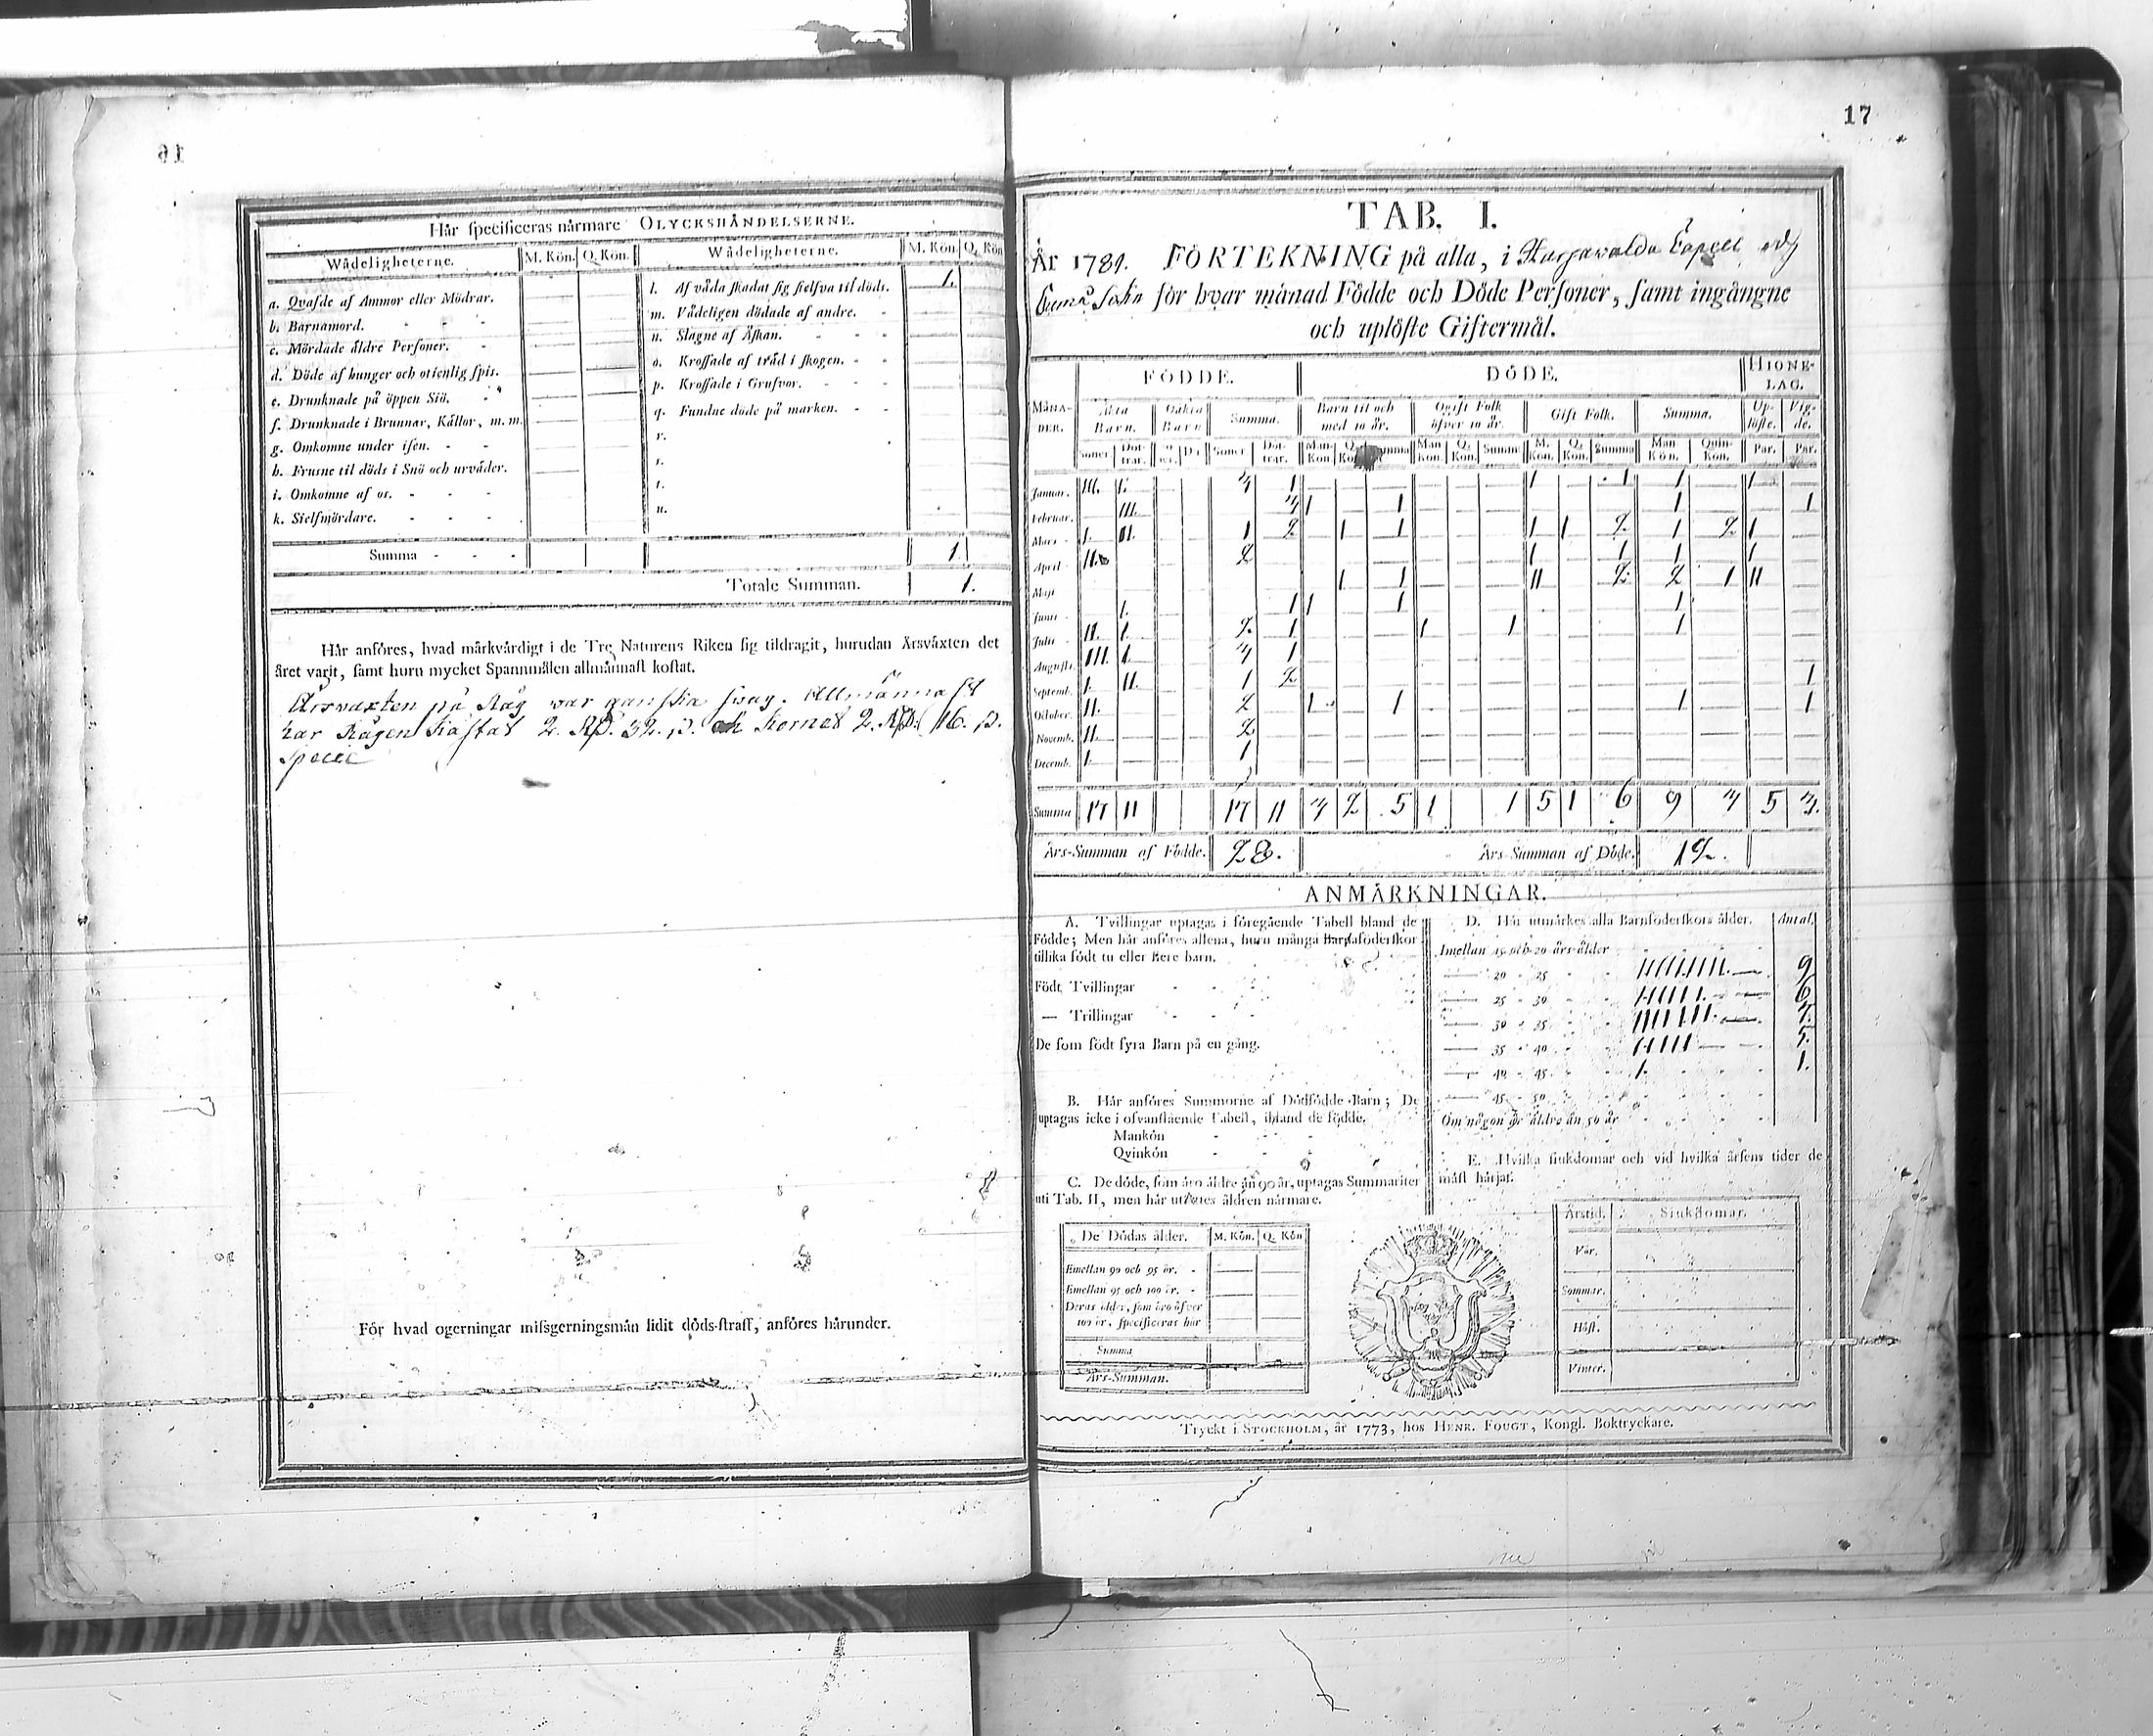 16
Hår specificeras nårmare OLYCKSHÅNDELSERNE.
Wådeligheterne. M. Kön. Q. Kön. Wådeligheterne. M. Kön. Q. Kön
a. Qvafde af Ammor eller Mödrar.
b. Barnamord.
c. Mördade äldre Personer.
d. Döde af hunger och otienlig spis.
e. Drunknade på öppen Siö.
f. Drunknade i Brunnar, Källor, m. m.
g. Omkomne under isen.
h. Frusne til döds i Snö och urväder.
i. Omkomne af os.
k. Sielfmördare.
l. Af våda skadat sig sielfva til döds. 1.
m. Vådeligen dödade af andre.
n. Slagne af Åskan.
o. Krossade af träd i skogen.
p. Krossade i Grufvor.
q. Fundne döde på marken.
r.
s.
t.
u.
Summa 1.
Totale Summan. 1.
Hår anföres, hvad mårkvårdigt i de Tre Naturens Riken sig tildragit, hurudan Årsvåxten det
året varit, samt huru mycket Spannmålen allmånnast kostat.
Årsvaxten på Råg war ganska swag. Allmännast
har Rågen kåstat 2. Rd. 32. s. och Kornet 2. Rd. 16. s.
Specie
För hvad ogerningar missgerningsmån lidit döds-straff, anföres hårunder.
17
TAB. I.
År 1789. FÖRTEKNING på alla, i Capell
för hvar månad Födde och Döde Personer, samt ingångne
och uplöste Giftermål.
MÅNA-DER. FÖDDE. DÖDE. HIONE-LAG.
Äkta Barn. Oäkta Barn Summa. Barn til och med 10 år. Ogift Folk öfver 10 år. Gift Folk. Summa. Up-löste. Vig-de.
Söner Döt-trar. Söner Döt-trar. Man Kön Q. Kön Summa Man kön. Q. Kön. Summ M. Kön. Q. Kön. Summa Man Kön. Quin-Kön. Par. Par.
Januar. III. I. 1 1 1 1 1
Februar. III. 1 1 1 1
Mars I. II. 1 2 1 1 1 1 2 1 2 1
April II. 2 1 1 1 1
Maji 1 1 II 2 2 1 II
Junii 1. 1 1 1 1
Julii II. 1. 2 1 1 1 1
Augusti. III. 1. 1
Septemb. 1. II. 1 2 1
October. II. 2 1 1 1 1
Novemb. II. 2
Decemb. 1. 1
Summa 17 11 17 11 3 2 5 1 1 5 1 6 9 3 5 3.
Års-Summan af Födde. 28. Års-Summan af Döde. 12.
ANMÄRKNINGAR.
A. Tvillingar uptagas i föregående Tabell bland de
Födde; Men hår anföres allena, huru många Barnaföderskor
tillika födt tu eller flere barn.
Födt Tvillingar
— Trillingar
De som födt fyra Barn på en gång.
B. Hår anföres Summorne af Dödfödde Barn; De
uptagas icke i ofvanstående Tabell, ibland de födde.
Mankön
Qvinkön
C. De döde, som äro äldre än 90 år, uptagas Summariter
uti Tab. II, men hår utsetes åldren nårmare.
De Dödas ålder. M. Kön. Q. Kön
Emellan 90 och 95 år.
Emellan 95 och 100 år.
Deras ålder, som äro öfver
100 år, specificeras hår
Summa
Års-Summan.
D. Hår utmärkes alla Barnföderskors ålder. Antal.
Imellan 15 och 20 års ålder
20 - 25 IIIIIIIII. 9
25 - 30 IIIIII. 6.
30 - 35 IIIIIII. 7.
35 - 40 IIIII 5.
40 - 45 I. 1.
45 - 50
Om någon är äldre än 50 år
E. Hvilka siukdomar och vid hvilka årsens tider de
mäst härjat.
Årstid. Siukdomar.
Vår.
Sommar.
Höst.
Vinter.
Tryckt i STOCKHOLM, år 1773, hos HENR. FOUGT, Kongl. Boktryckare.